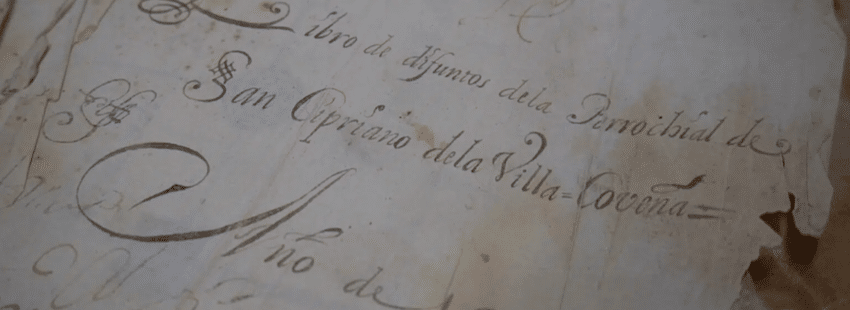 Libro de difuntos dela Perrochial de
San Cipriano dela Villa=Coveña=
Año de